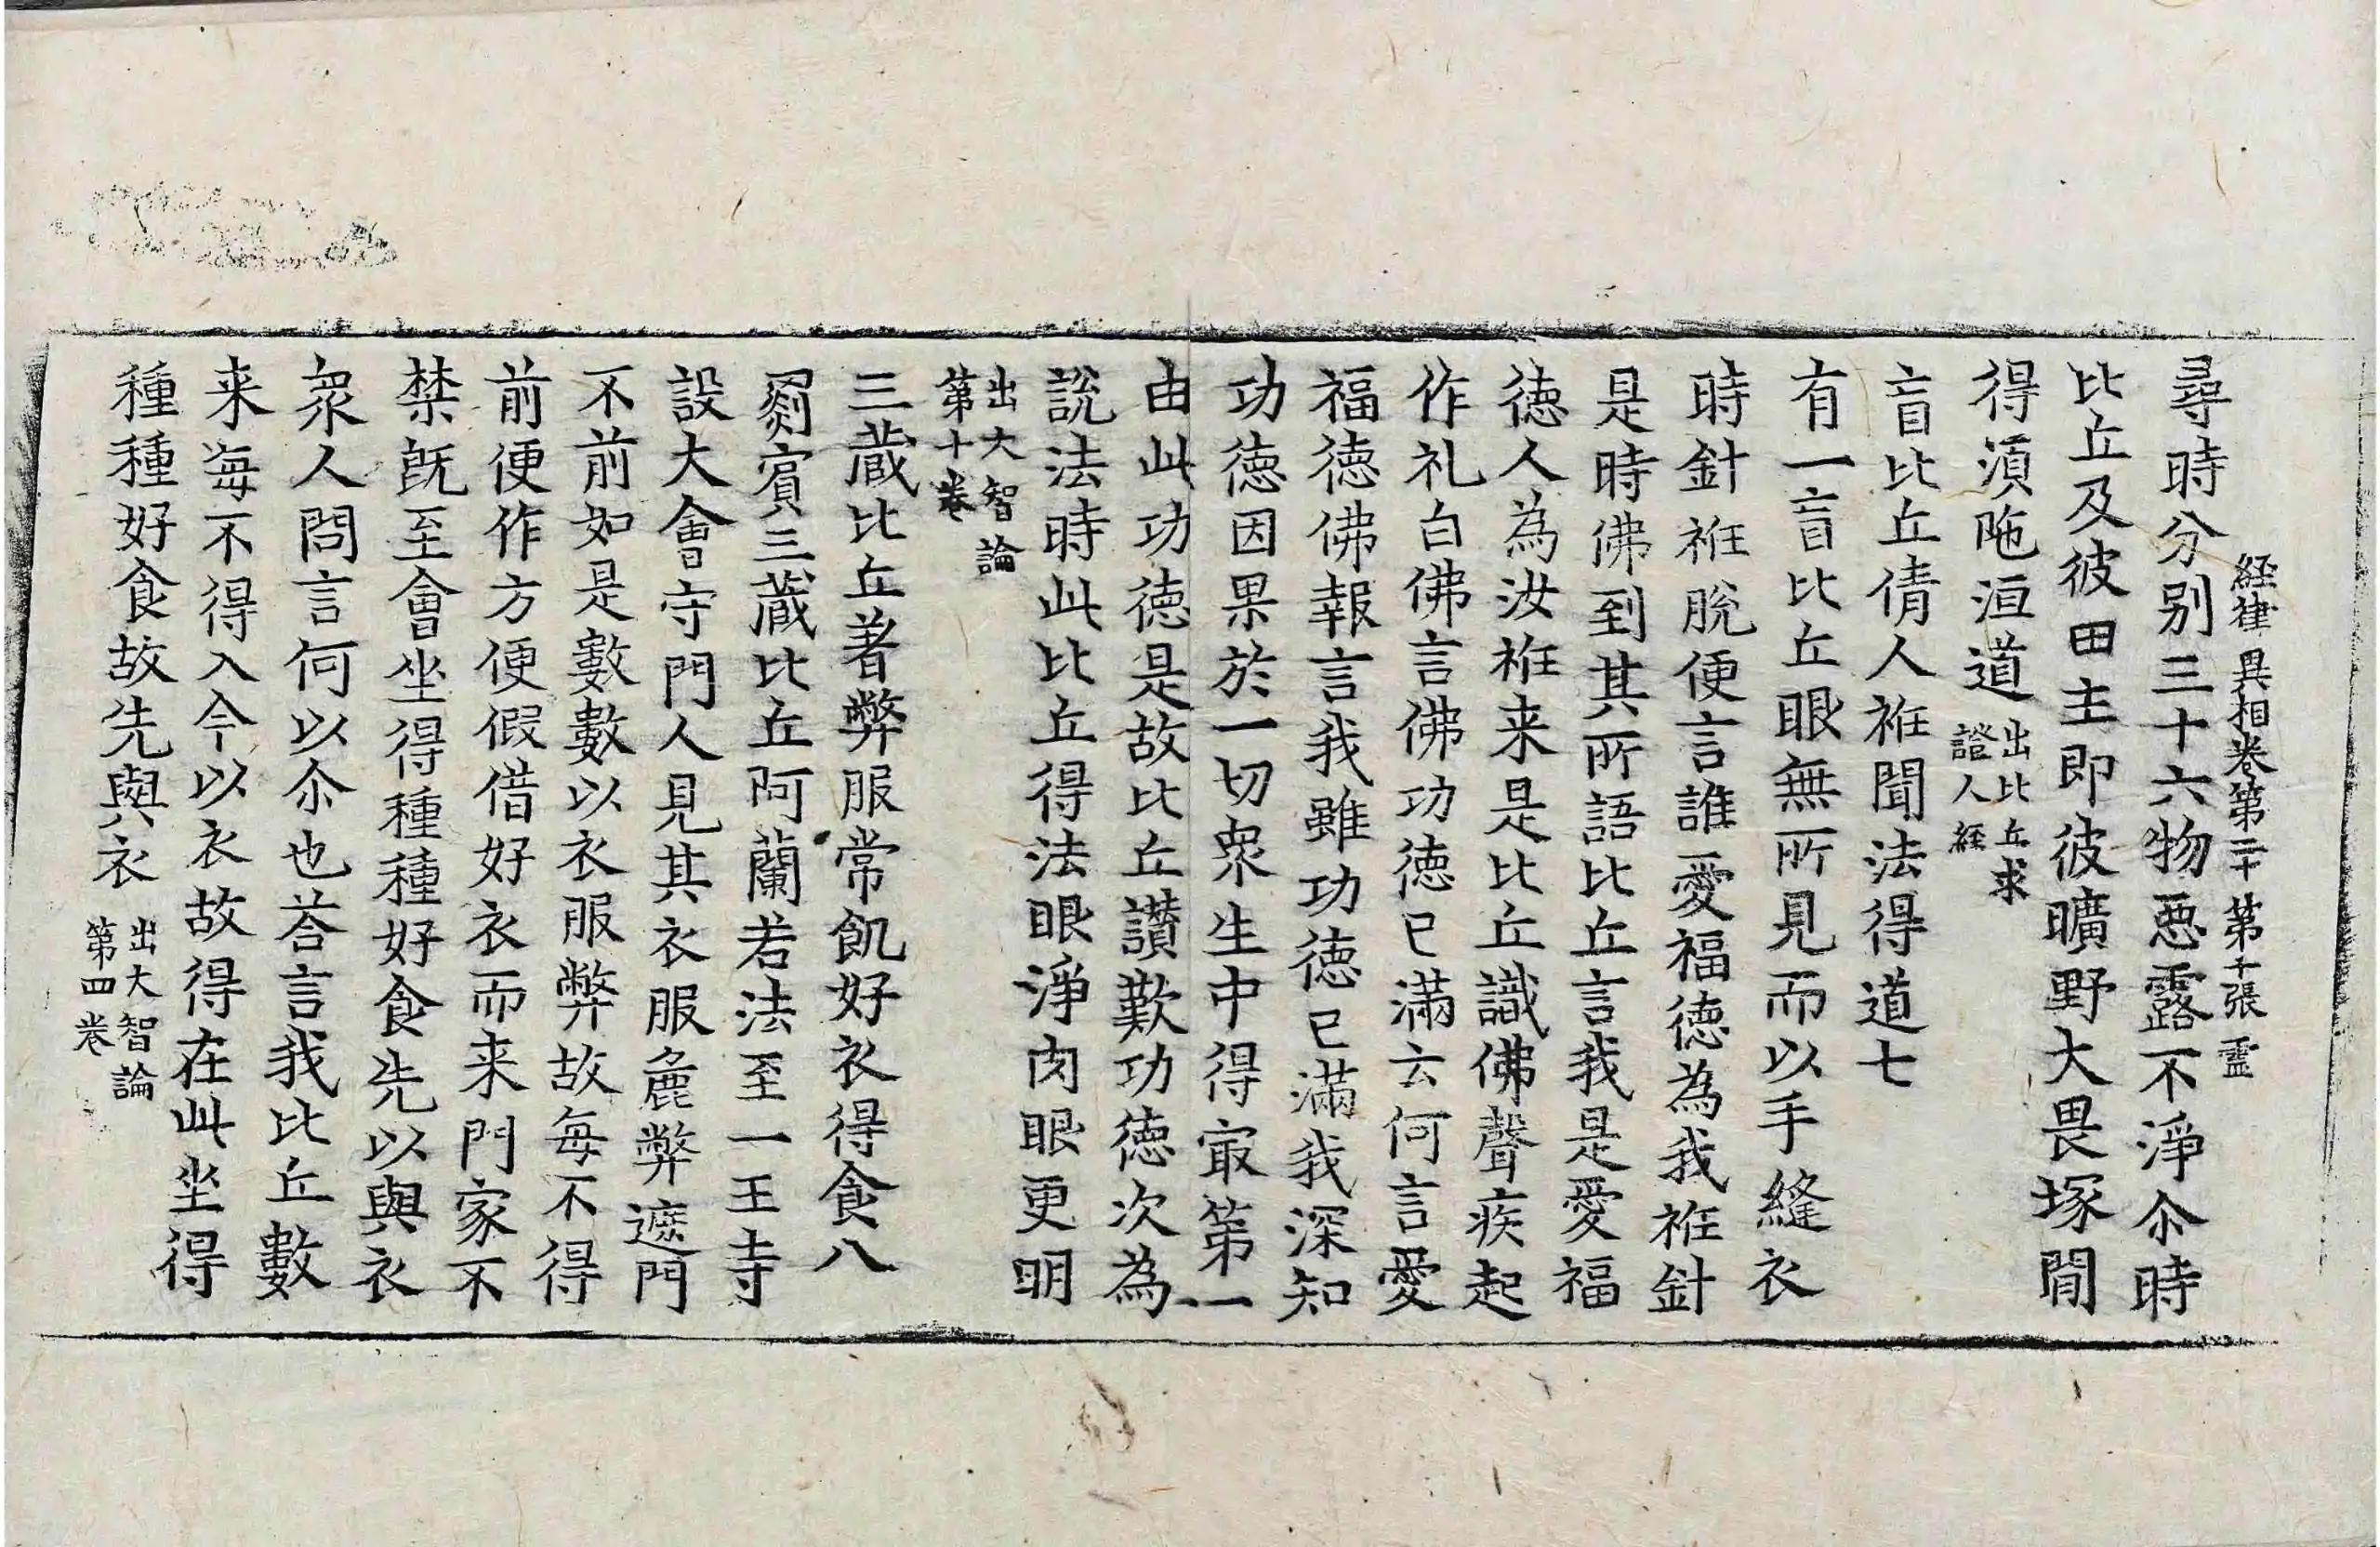 経律異相卷第二十 第十張 霊
尋時分别三十六物惡露不淨尒時
比丘及彼田主即彼曠野大畏塚閒
得湏陁洹道出比丘求證人経
盲比丘倩人袵聞法得道七
有一盲比丘眼無所見而以手縫衣
時針袵脫便言誰愛福德為我袵針
是時佛到其所語比丘言我是愛福
德人為汝袵来是比丘識佛聲疾起
作礼白佛言佛功德已滿云何言愛
福德佛報言我雖功德已滿我深知
功德因果於一切衆生中得㝡第一
由此功德是故比丘讃歎功德次為
說法時此比丘得法眼淨肉眼更明
出大智論第十卷
三藏比丘著弊服常飢好衣得食八
罽賓三藏比丘阿蘭若法至一王寺
設大會守門人見其衣服麁弊遮門
不前如是數數以衣服弊故每不得
前便作方便假借好衣而来門家不
禁旣至會坐得種種好食先以與衣
衆人問言何以尒也荅言我比丘數
来每不得入今以衣故得在此坐得
種種好食故先與衣出大智論第四卷